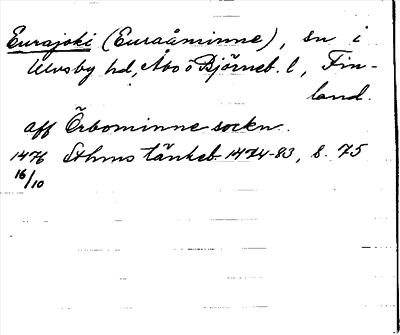 Eurajoki (Euraåminne), sn i
Ulvsby hd, Åbo o Björneb. l, Fin-
land.
aff Örbominne sockn.
1476 Sthms tänkeb 1474-83, s. 75
16/10